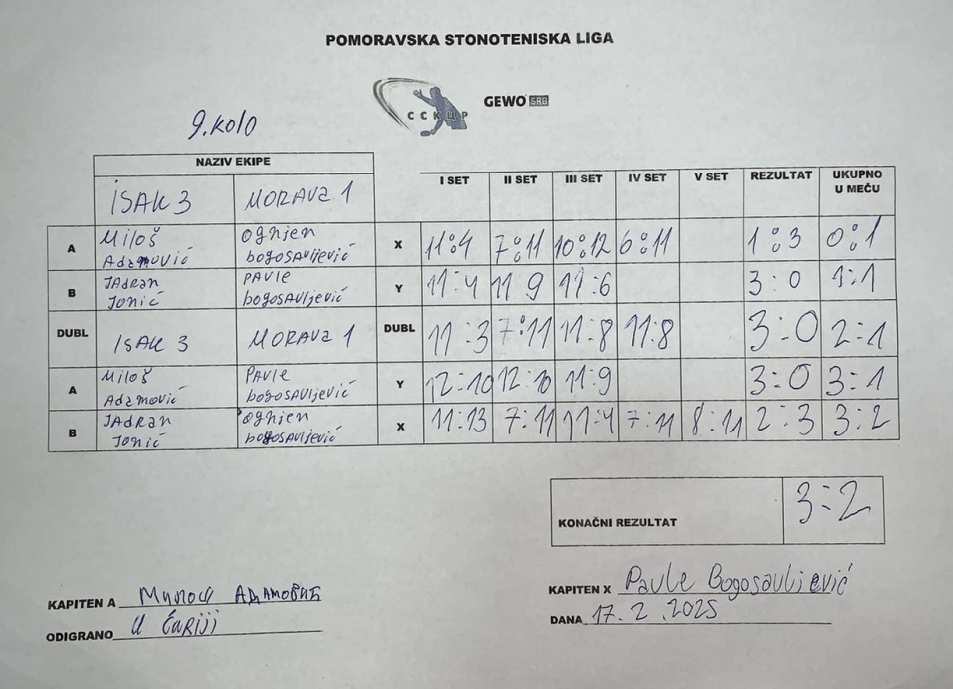 POMORAVSKA STONOTENISKA LIGA
ССКШР GEWO SRB
9.kolo
NAZIV EKIPE
I SET II SET III SET IV SET V SET REZULTAT UKUPNO U MEČU
ISAK 3 MORAVA 1
A Miloš Adamović Ognjen bogosavljević X 11:4 7:11 10:12 6:11 1:3 0:1
B JADRAN Jonić PAVLE bogosavljević Y 11:4 11 9 11:6 3:0 1:1
DUBL ISAK 3 MORAVA 1 DUBL 11:3 7:11 11:8 11:8 3:0 2:1
A Miloš Adamović PAVLE bogosavljević Y 12:10 12:10 11:9 3:0 3:1
B JADRAN Jonić Ognjen bogosavljević X 11:13 7:11 11:4 7:11 8:11 2:3 3:2
KONAČNI REZULTAT 3:2
KAPITEN A Милош Адамовић KAPITEN X Pavle Bogosavljević
ODIGRANO U Ćuriji DANA 17.2.2025